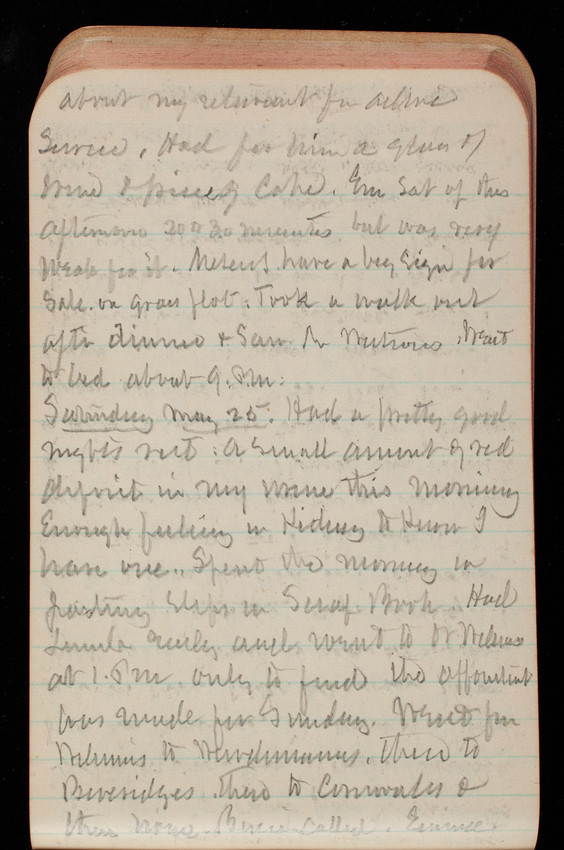 about my retirement for active
Service. Had for him a glass of
wine & piece of Cake. Em Sat up this
afternoon 20 or 30 minutes but was very
Weak for it. have a big Sign for
Sale on grass plot. Took a walk out
after dinner & Saw Dr Went
to bed about 9. P.m.
Saturday May 25. Had a pretty good
nights rest. A Small amount of red
deposit in my urine this morning
Enough feeling in Kidney to Know I
have one. Spent the morning in
pasting Slips in Scrap Book. Had
Lunch early and went to Dr
at 1. P.m. only to find the appointment
was made for Sunday. Went from
to then to
Beveridges. then to &
then home. called.